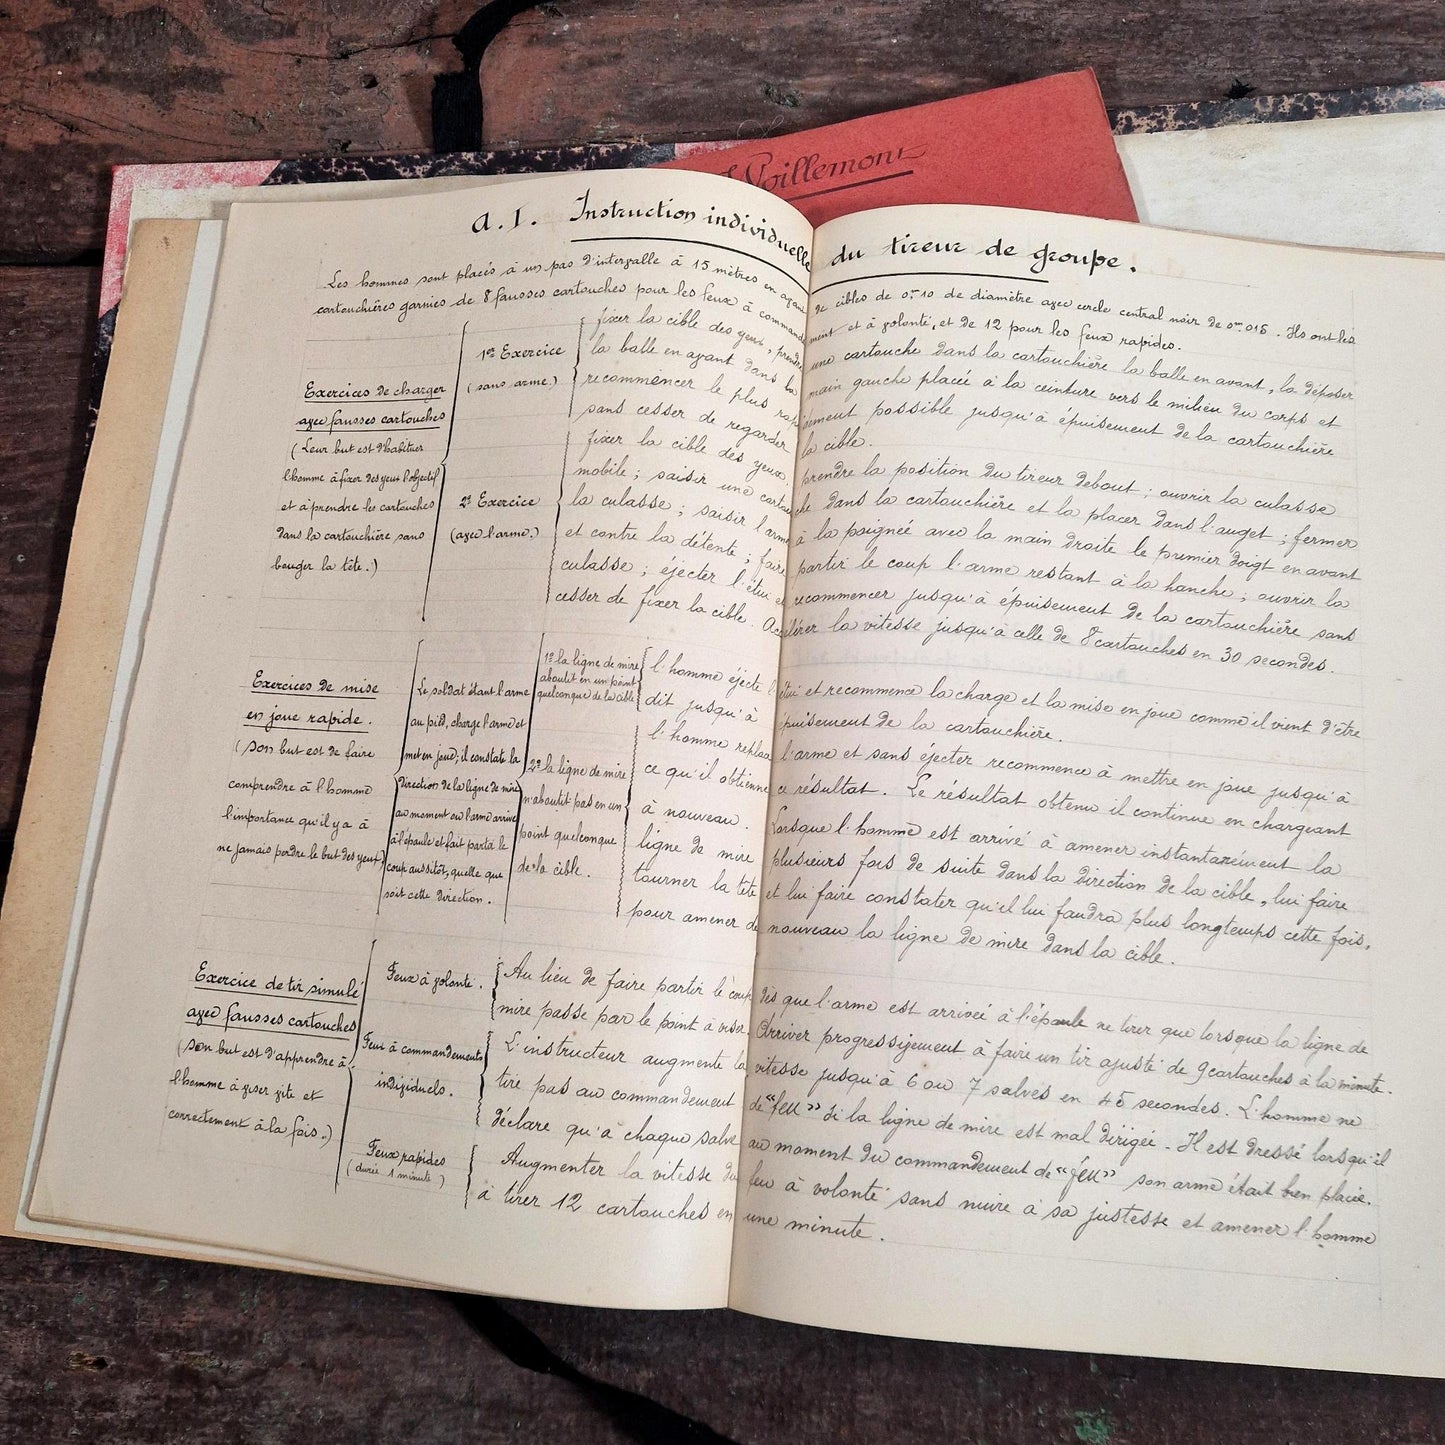 Woillemont
A.I. Instruction individuelle du tireur de groupe.
Les hommes sont placés à un pas d'intervalle à 15 mètres en ayant de cibles de 0,m10 de diamètre avec cercle central noir de 0m,015. Ils ont les
cartouchières garnies de 8 fausses cartouches pour les feux à commandement et à volonté, et de 12 pour les feux rapides.
Exercices de charger
avec fausses cartouches
(Leur but est d'habituer
l'homme à fixer des yeux l'objectif
et à prendre les cartouches
dans la cartouchière sans
bouger la tête.)
1er Exercice
(sans arme.)
fixer la cible des yeux, prendre une cartouche dans la cartouchière la balle en avant, la déposer
la balle en ayant dans la main gauche placée à la ceinture vers le milieu du corps et
recommencer le plus rapidement possible jusqu'à épuisement de la cartouchière
sans cesser de regarder la cible.
2e Exercice
(avec l'arme.)
fixer la cible des yeux, prendre la position du tireur debout; ouvrir la culasse
mobile; saisir une cartouche dans la cartouchière et la placer dans l'auget; fermer
la culasse; saisir l'arme à la poignée avec la main droite le premier doigt en avant
et contre la détente; faire partir le coup l'arme restant à la hanche; ouvrir la
culasse; éjecter l'étui et recommencer jusqu'à épuisement de la cartouchière sans
cesser de fixer la cible. Accélérer la vitesse jusqu'à celle de 8 cartouches en 30 secondes.
Exercices de mise
en joue rapide.
(son but est de faire
comprendre à l'homme
l'importance qu'il y a à
ne jamais perdre le but des yeux)
Le soldat étant l'arme
au pied, charge l'arme et
met en joue; il constate la
direction de la ligne de mire
au moment où l'arme arrive
à l'épaule et fait partir le
coup aussitôt, quelle que
soit cette direction.
1° la ligne de mire
aboutit en un point
quelconque de la cible
l'homme éjecte l'étui et recommence la charge et la mise en joue comme il vient d'être
dit jusqu'à épuisement de la cartouchière.
2° la ligne de mire
n'aboutit pas en un
point quelconque
de la cible.
l'homme replace l'arme et sans éjecter recommence à mettre en joue jusqu'à
ce qu'il obtienne ce résultat. Le résultat obtenu il continue en chargeant
à nouveau. Lorsque l'homme est arrivé à amener instantanément la
ligne de mire plusieurs fois de suite dans la direction de la cible, lui faire
tourner la tête et lui faire constater qu'il lui faudra plus longtemps cette fois,
pour amener de nouveau la ligne de mire dans la cible.
Exercice de tir simulé
avec fausses cartouches
(son but est d'apprendre à
l'homme à viser vite et
correctement à la fois.)
Feux à volonté.
Au lieu de faire partir le coup dès que l'arme est arrivée à l'épaule ne tirer que lorsque la ligne de
mire passe par le point à viser. Arriver progressivement à faire un tir ajusté de 9 cartouches à la minute.
Feux à commandements
individuels.
L'instructeur augmente la vitesse jusqu'à 6 ou 7 salves en 45 secondes. L'homme ne
tire pas au commandement de "feu" si la ligne de mire est mal dirigée. Il est dressé lorsqu'il
déclare qu'à chaque salve au moment du commandement de "feu" son arme était bien placée.
Feux rapides
(durée 1 minute)
Augmenter la vitesse du feu à volonté sans nuire à sa justesse et amener l'homme
à tirer 12 cartouches en une minute.